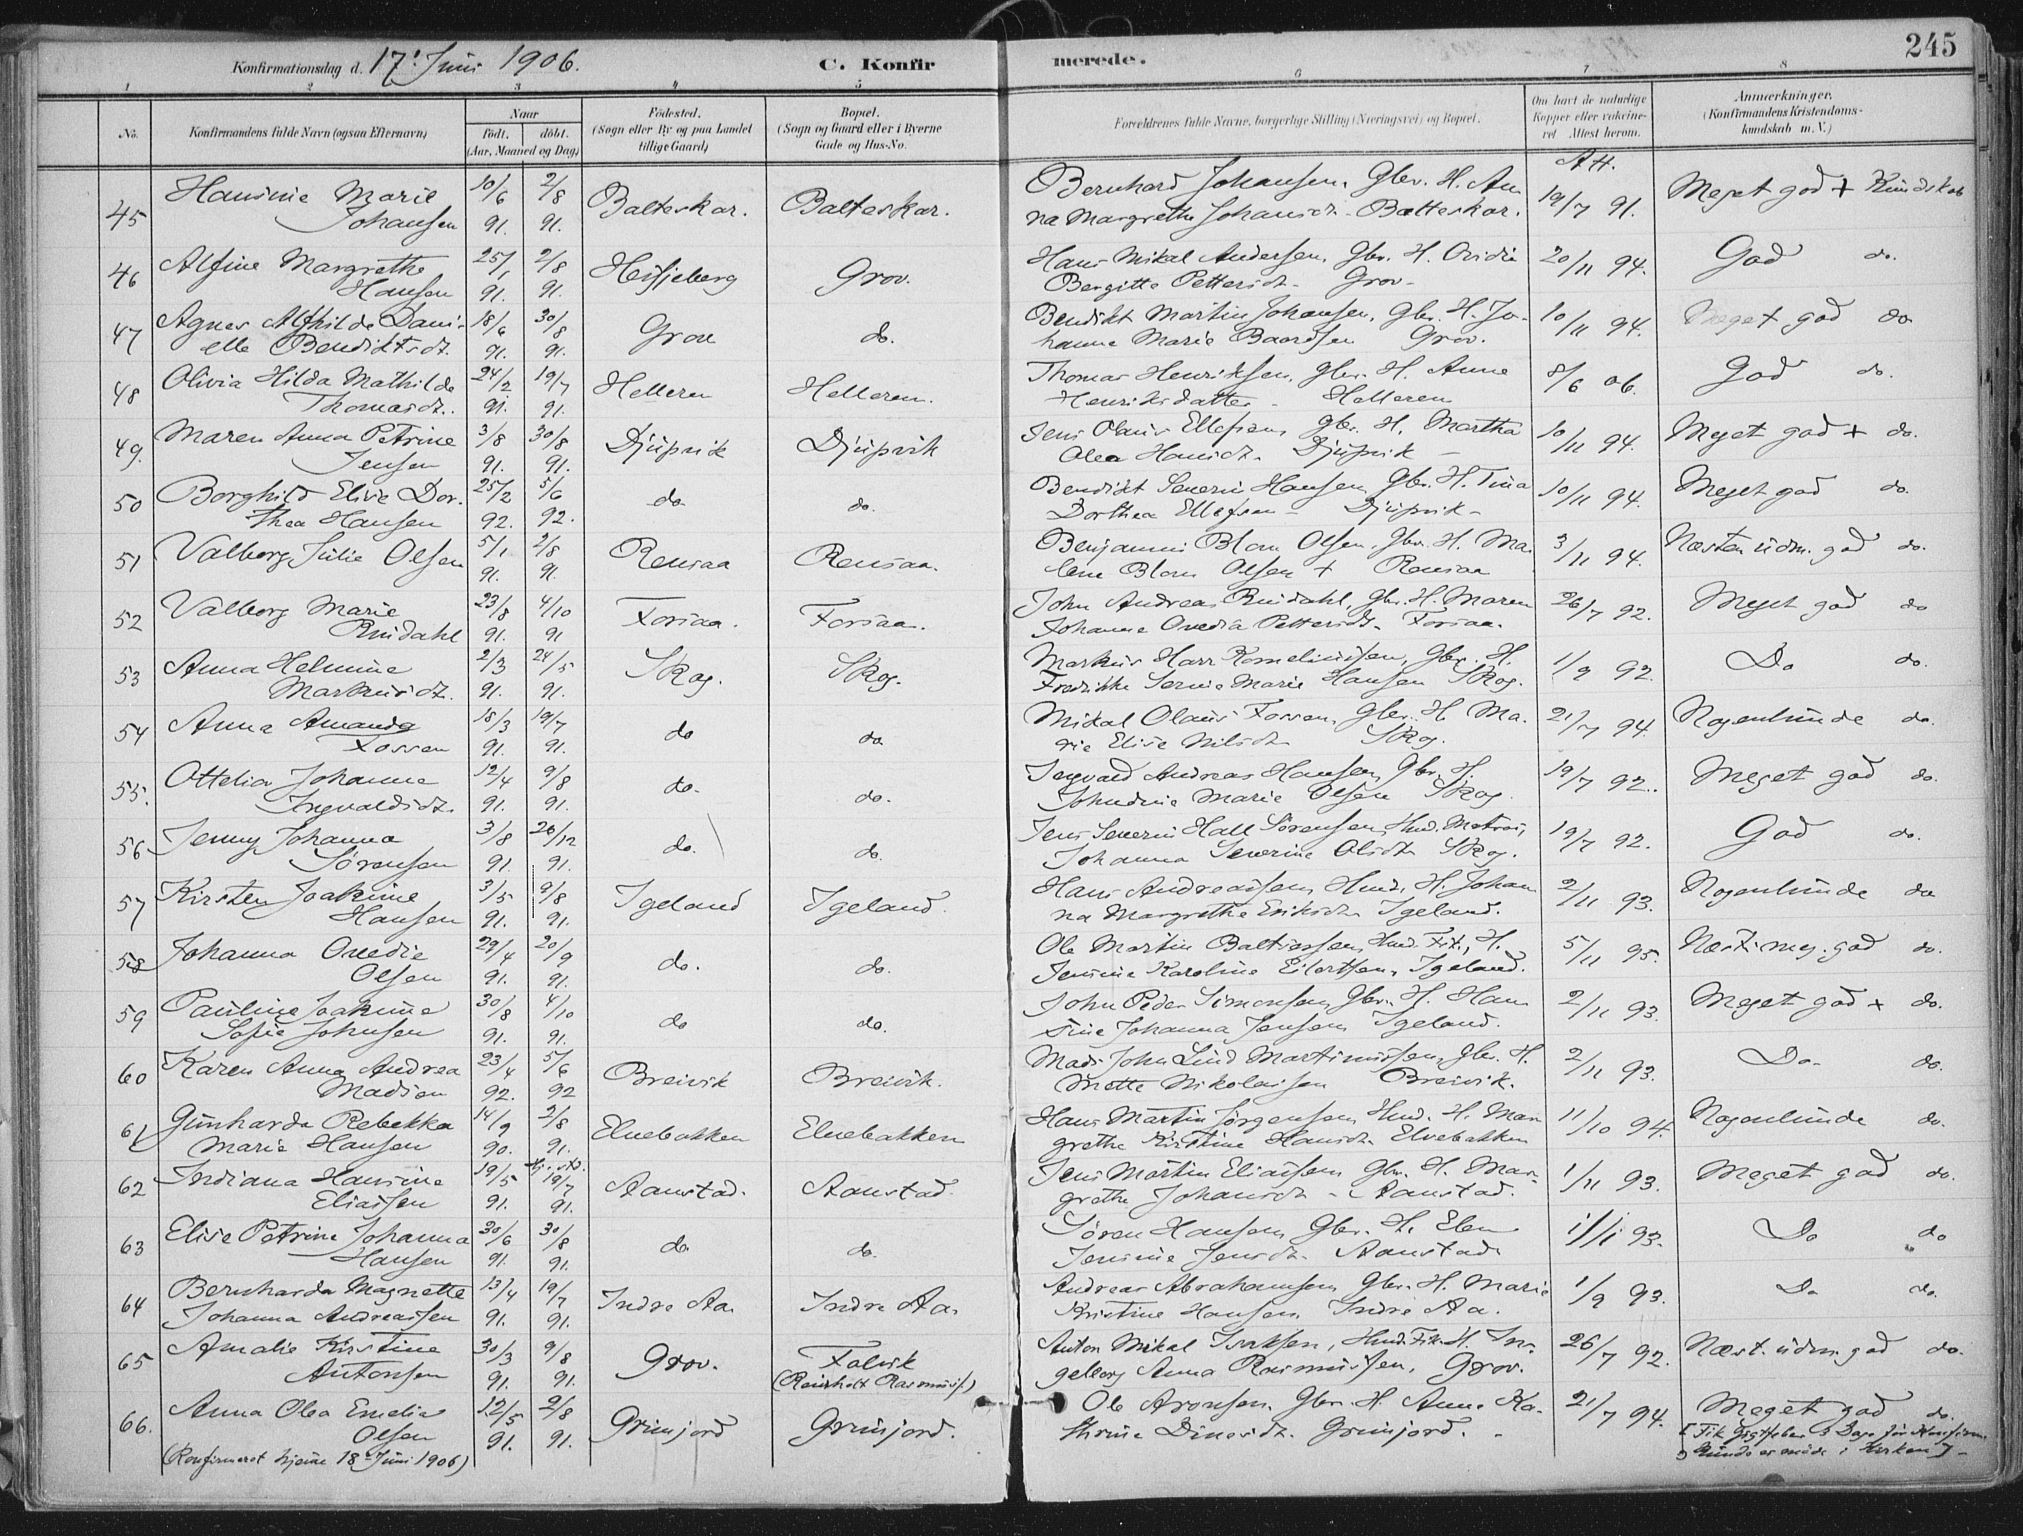 245
Konfirmationsdag d. 17' Juni 1906. C. Konfirmerede.
1 2 3 4 5 6 7 8
No. Konfirmandens fulde Navn (ogsaa Efternavn) Naar født. døbt. (Aar, Maaned og Dag) Fødested. (Sogn eller By og paa Landet tillige Gaard) Bopæl. (Sogn og Gaard eller i Byerne Gade og Hus-No. Forældrenes fulde Navne, borgerlige Stilling (Næringsvei) og Bopæl. Om havt de naturlige Kopper eller vakcineret Attest herom. Anmærkninger. (Konfirmandens Kristendomskundskab m. V.)
Att.
45 Hansine Marie 10/6 2/8 Balteskar. Balteskar. Bernhard Johansen, Gbr. H. An- 19/7 91. Meget god + Kundskab
Johansen 91. 91. na Margrethe Johansdt. Balteskar.
46 Alfine Margrethe 25/1 2/8 Hessjeberg Grov. Hans Mikal Andersen, Gbr. H. Ovidia 20/11 94. God do.
Hansen 91. 91. Bergitte Pettersdt. Grov
47 Agnes Alfhilde Dani- 18/6 30/8 Grov do. Bendikt Martin Johansen, Gbr. H. Jo- 10/11 94. Meget god do
elle Bendiktsdt. 91. 91. hanne Marie Baardsen Grov.
48 Olivia Hilda Mathilde 24/2 19/7 Helleren Helleren. Thomas Henriksen, Gbr. H. Anne 8/6 06. God do.
Thomasdt. 91. 91. Henriksdatter - Helleren
49. Maren Anna Petrine 3/8 30/8 Djupvik Djupvik Jens Olaus Ellefsen, Gbr. H. Martha 10/11 94. Meget god + do.
Jensen 91. 91. Olea Hansdt. Djupvik -
50 Borghild Elise Dor- 25/2 5/6 do do. Bendikt Severin Hansen, Gbr. H. Tina 10/11 94. Meget god do.
thea Hansen 92. 92. Dorthea Ellefsen - Djupvik -
51 Valborg Julie Olsen 5/1 2/8 Rensaa Rensaa. Benjamin Blom Olsen, Gbr. H. Ma- 3/11 94. Næsten udm. god do.
91. 91. lene Blom Olsen + Rensaa
52 Valborg Marie 23/8 4/10 Forsaa. Forsaa. John Andreas Rindahl, Gbr. H. Maren 26/7 92. Meget god do
Rindahl 91. 91 Johanne Ovedia Pettersdt. Forsaa.
53 Anna Helmine 2/3 24/5 Skog. Skog. Markus Harr Korneliussen, Gbr. H. 1/9 92. Do do.
Markusdt. 91. 91. Fredrikke Marie Hansen Skog.
54 Anna Amanda 18/3 19/7 do do Mikal Olaus Fossen, Gbr. H. Ma- 21/7 94. Nogenlunde do.
Fossen 91. 91. rie Elise Nilsdt. Skog.
55. Ottelia Johanne 12/4 9/8 do. do. Ingvald Andreas Hansen, Gbr. H. 19/7 92. Meget god do.
Ingvaldsdt. 91. 91. Johndine Marie Olsen Skog
56 Jenny Johanna 3/8 26/12 do. do. Jens Severin Hall Sørensen, Hmd. Matros, 19/7 92. God do.
Sørensen 91. 91. Johanna Severine Olsdt. Skog.
57 Kirsten Joakime 3/5 9/8 Igeland Igeland. Hans Andreassen, Hmd. H. Johan- 2/11 93. Nogenlunde do
Hansen 91. 91. na Margrethe Eriksdt. Igeland.
58 Johanna Ovedie 29/4 20/9 do. do. Ole Martin Baltzersen, Hmd. Fik., H. 5/11 95. Næst. meg. god do.
Olsen 91. 91. Jensine Karoline Eilertsen, Igeland.
59 Pauline Joakime 30/8 4/10 do do. John Peder Simonsen, Gbr. H. Han- 2/11 93. Meget god + do.
Sofie Johnsen 91. 91. sine Johanna Jensen, Igeland.
60 Karen Anna Andrea 23/4 5/6 Breivik Breivik. Mads John Lind Martinussen, Gbr. H. 2/11 93. Do. do.
Madsen 92. 92 Mette Nikolaisen Breivik.
61 Gunharda Rebekka 14/9 2/8 Elvebakken Elvebakken Hans Martin Jørgensen, Hmd. H. Mar- 11/10 94. Nogenlunde do.
Marie Hansen 90. 91. grethe Kirstine Hansdt. Elvebakken
62 Indiana Hansine 19/5 19/7 Aanstad. Aanstad. Jens Martin Eliassen, Gbr. H. Mar- 1/11 93. Meget god do.
Eliassen 91. 91. grethe Johansdt. - Aanstad.
63 Elise Petrine Johanna 30/6 30/8 do. do. Søren Hansen, Gbr. H. Elen 1/11 93. Do do
Hansen 91. 91. Jensine Jensdt. Aanstad.
64 Bernharda Magnette 13/4 19/7 Indre Aa. Indre Aa. Andreas Abrahamsen, Gbr. H. Marie 1/9 93. Do do.
Johanna Andreassen 91. 91. Kristine Hansen, Indre Aa.
65 Amalie Kristine 30/3 9/8 Grov. Falvik Anton Mikal Isaksen, Hmd. Fik. H. In- 26/7 92. Næst. udm. god do.
Antonsen 91. 91. (Reinholt Rasmuss.) geborg Anna Rasmussen, Grov.
66. Anna Olea Emelie 12/5 2/8 Grimjord Grimjord. Ole Aronsen, Gbr. H. Anne Ka- 21/7 94. Meget god do.
Olsen 91. 91. thrine Dinesdt. Grimjord.
(Konfirmeret hjemme 18de Juni 1906) [Fik Gigtfeber 3 Dage før Konfirm.
Kunde ei møde i Kirken] -